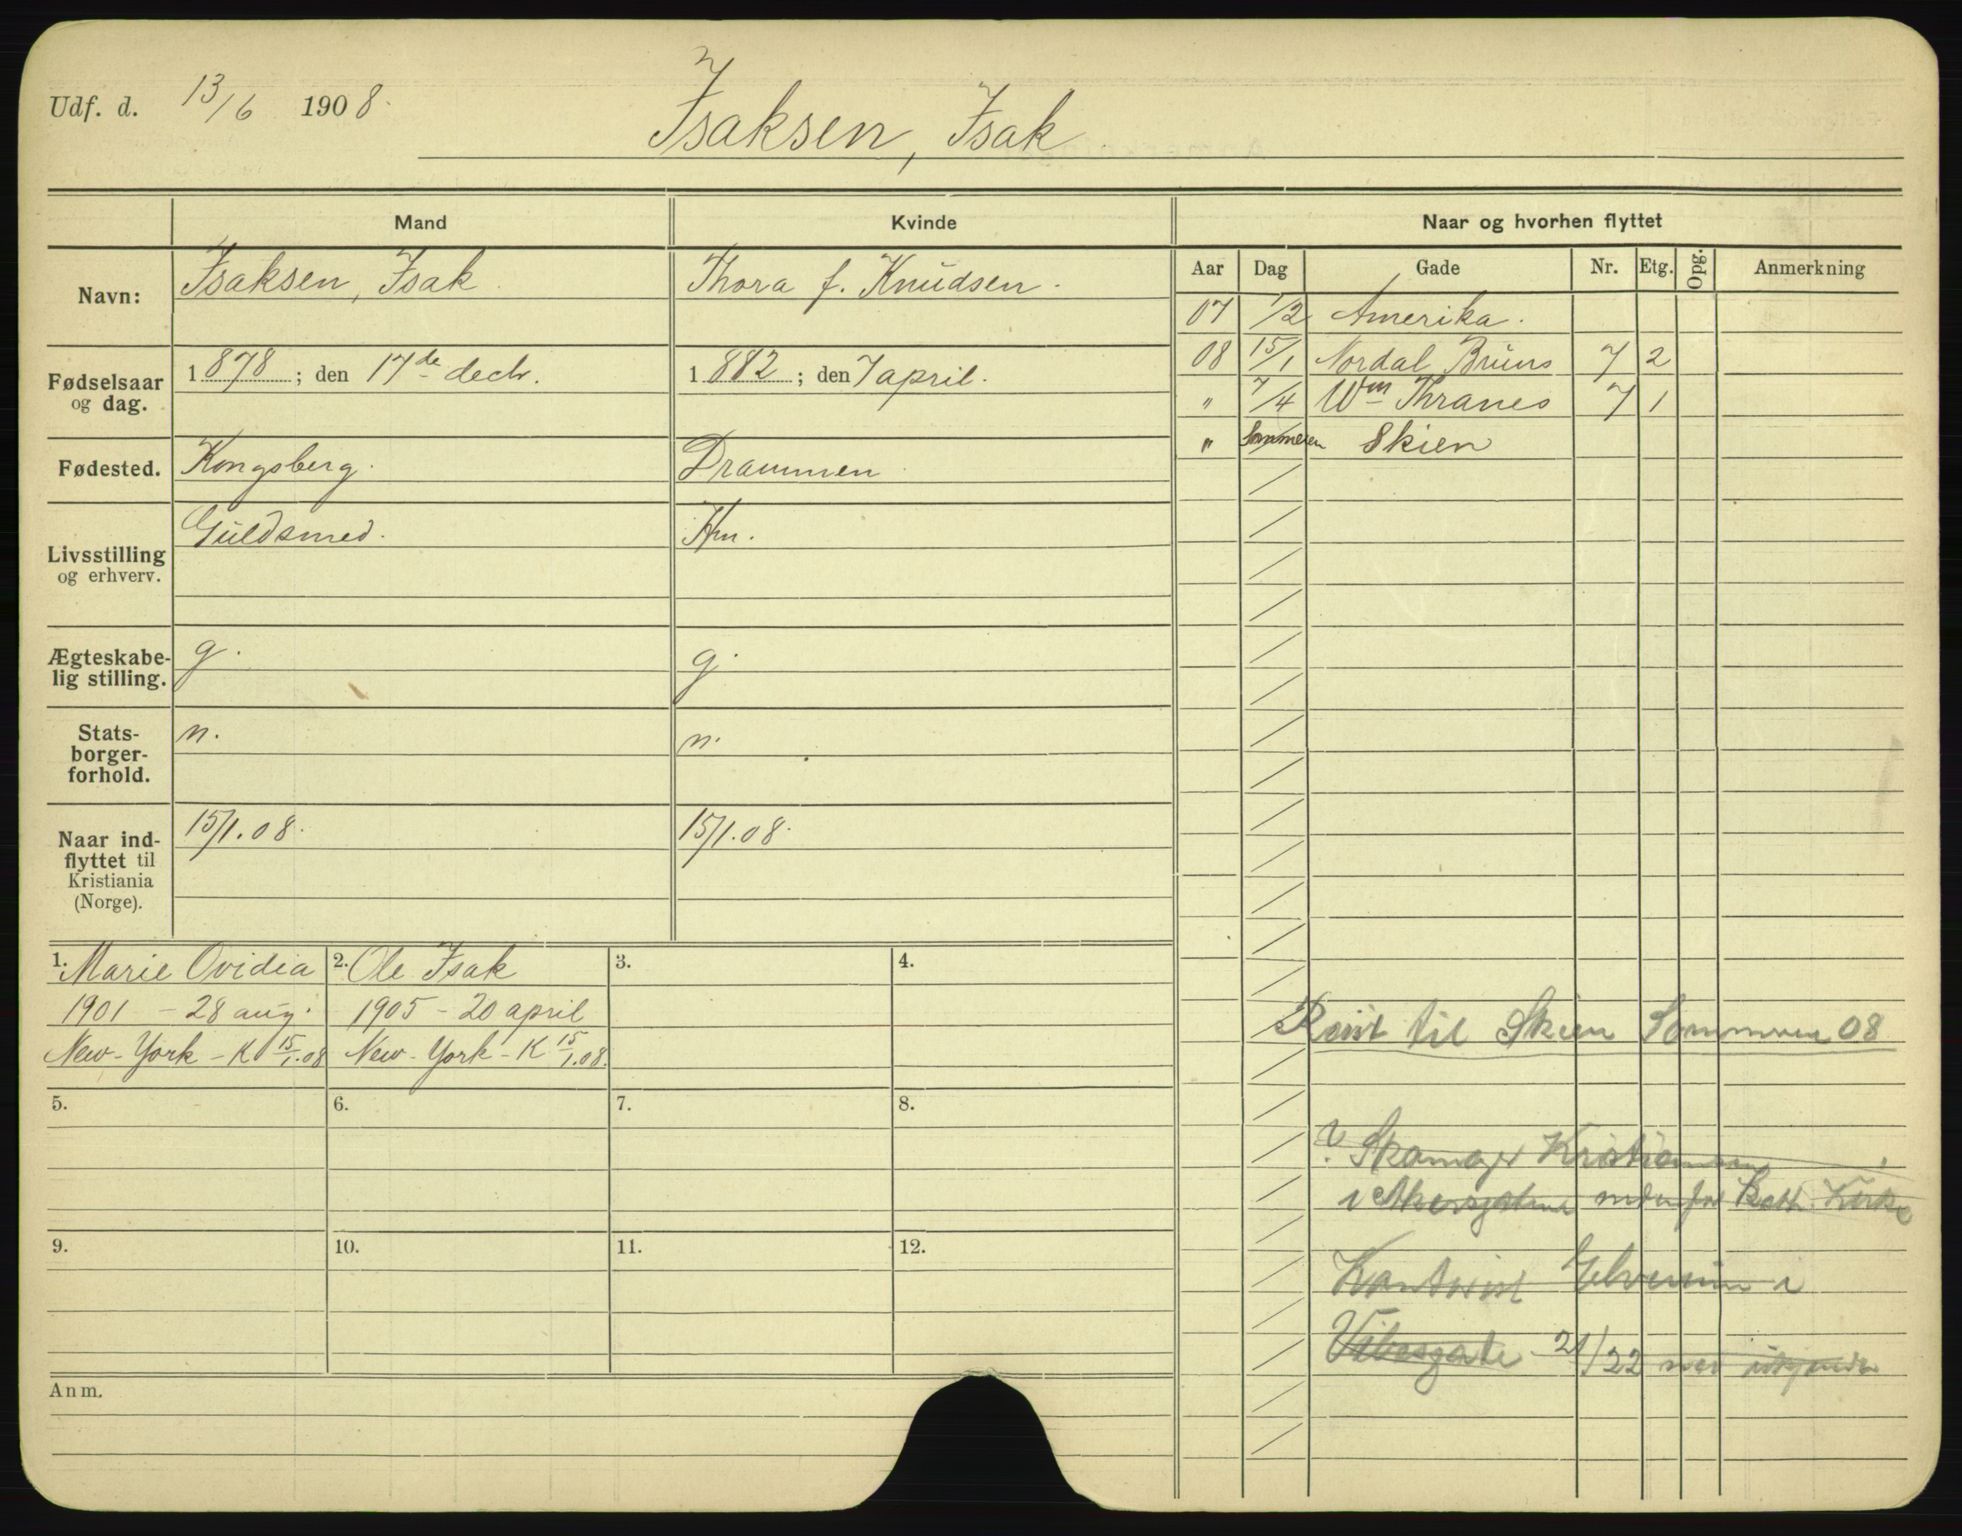 Udf. d. 13/6 1908.
Isaksen, Isak
Mand Kvinde Naar og hvorhen flyttet
Aar Dag Gade Nr. Etg. Opg. Anmerkning
Navn: Isaksen, Isak Thora f. Knudsen.
07 1/2 Amerika.
08 15/1 Nordal Bruns 7 2
Fødselsaar og dag. 1878; den 17de decbr. 1882; den 7 april.
" 7/4 Wm Thranes 7 1
" Sommeren Skien
Fødested. Kongsberg. Drammen
Livsstilling og erhverv. Guldsmed. Hm.
Ægteskabe-
lig stilling. g. g.
Stats-
borger-
forhold. n. n.
Naar ind-
flyttet til
Kristiania
(Norge). 15/1.08. 15/1.08.
1. Marie Ovidia
1901 - 28 aug.
New-York - K 15/1.08
2. Ole Isak
1905 - 20 april
New-York - K 15/1.08.
3.
4.
5.
6.
7.
8.
9.
10.
11.
12.
Anm.
Reist til Skien Sommeren 08
? Skomager Kristiansen
i Akersgaten nedenfor Kath. Kirke
i
21/22